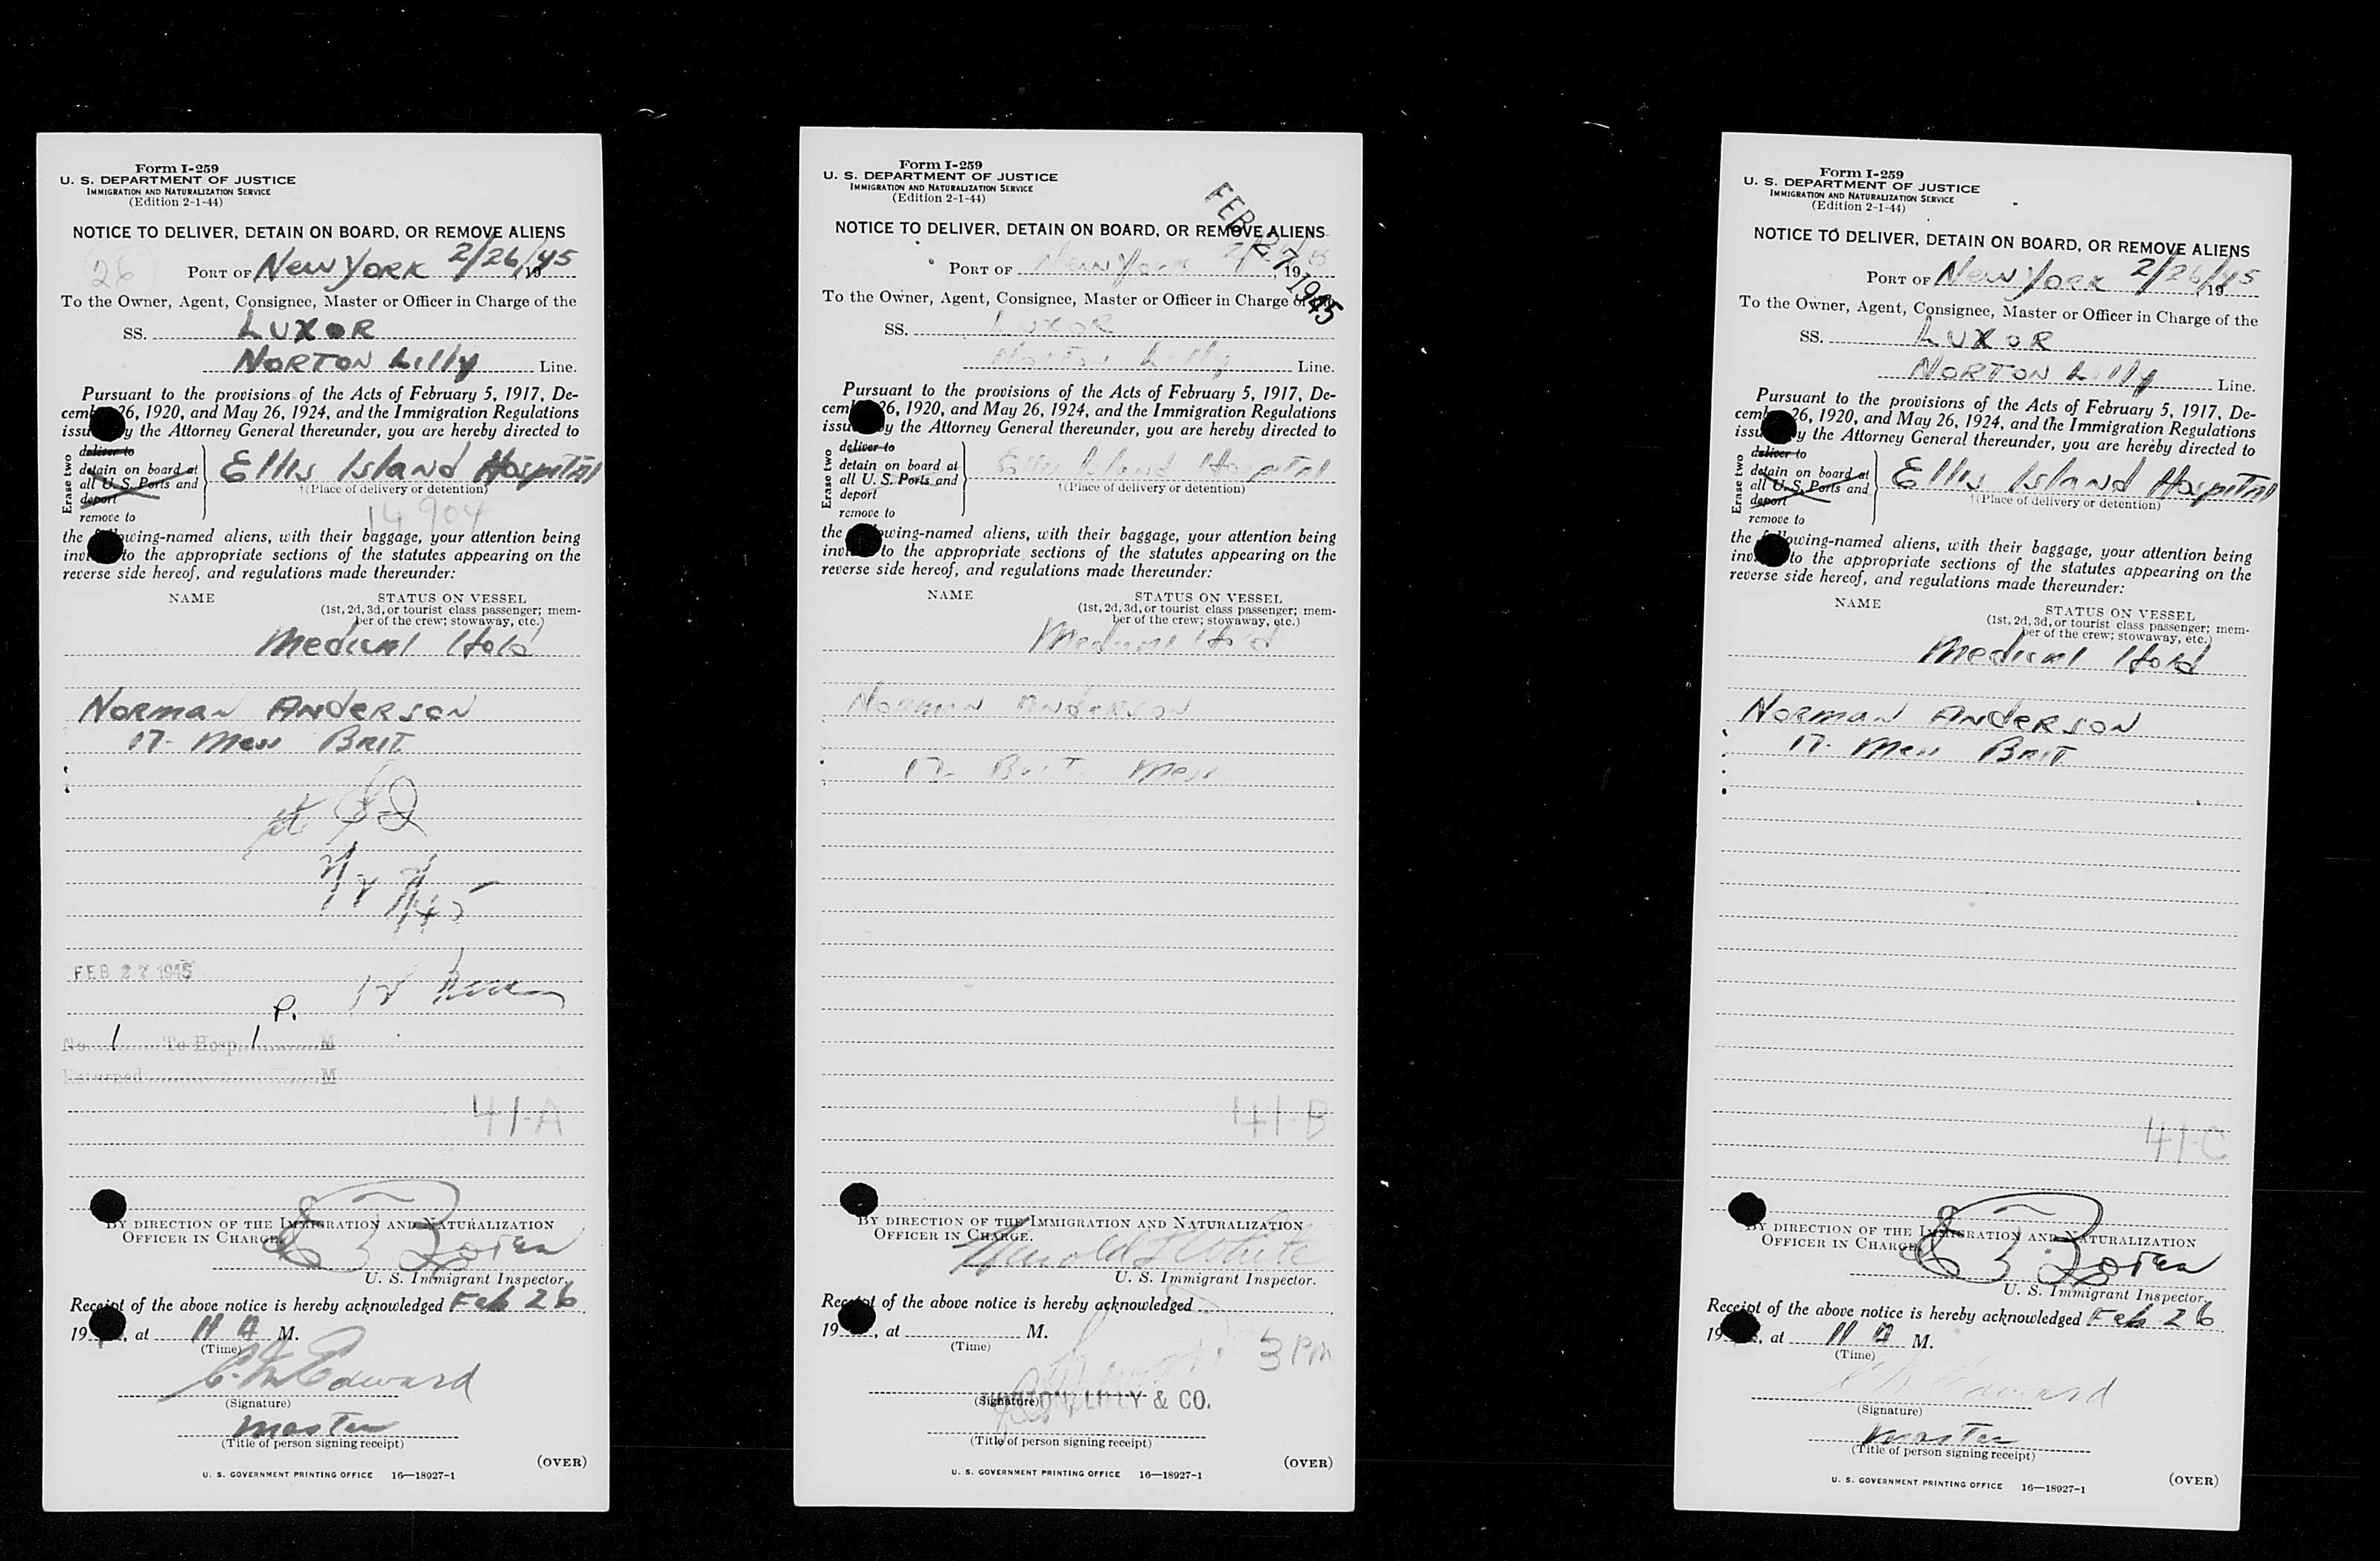 Form I-259
U. S. DEPARTMENT OF JUSTICE
IMMIGRATION AND NATURALIZATION SERVICE
(Edition 2-1-44)
NOTICE TO DELIVER, DETAIN ON BOARD, OR REMOVE ALIENS
26
PORT OF New York 2/26/45, 19
To the Owner, Agent, Consignee, Master or Officer in Charge of the
SS. LUXOR
NORTON Lilly Line.
Pursuant to the provisions of the Acts of February 5, 1917, De-
cem 26, 1920, and May 26, 1924, and the Immigration Regulations
issu y the Attorney General thereunder, you are hereby directed to
Erase two
deliver to
detain on board at
all U. S. Ports and
deport
remove to
Ellis Island Hospital
†(Place of delivery or detention)
14904
the owing-named aliens, with their baggage, your attention being
inv to the appropriate sections of the statutes appearing on the
reverse side hereof, and regulations made thereunder:
NAME STATUS ON VESSEL
(1st, 2d, 3d, or tourist class passenger; mem-
ber of the crew; stowaway, etc.)
Medical Hold
Norman Anderson
17- Mess BRIT.
FEB 27 1945
P.
No. 1 To Hosp. 1 M
Returned M
41-A
BY DIRECTION OF THE IMMIGRATION AND NATURALIZATION
OFFICER IN CHARGE.
U. S. Immigrant Inspector.
Receipt of the above notice is hereby acknowledged Feb 26
19 , at 11 A M.
(Time)
Edward
(Signature)
Master
(Title of person signing receipt)
(OVER)
U. S. GOVERNMENT PRINTING OFFICE 16—18927-1
Form I-259
U. S. DEPARTMENT OF JUSTICE
IMMIGRATION AND NATURALIZATION SERVICE
(Edition 2-1-44)
FEB 27 1945
NOTICE TO DELIVER, DETAIN ON BOARD, OR REMOVE ALIENS
PORT OF New York , 19
To the Owner, Agent, Consignee, Master or Officer in Charge of the
SS. LUXOR
Norton Lilly Line.
Pursuant to the provisions of the Acts of February 5, 1917, De-
cem 26, 1920, and May 26, 1924, and the Immigration Regulations
issu y the Attorney General thereunder, you are hereby directed to
Erase two
deliver to
detain on board at
all U. S. Ports and
deport
remove to
Ellis Island Hospital
†(Place of delivery or detention)
the owing-named aliens, with their baggage, your attention being
inv to the appropriate sections of the statutes appearing on the
reverse side hereof, and regulations made thereunder:
NAME STATUS ON VESSEL
(1st, 2d, 3d, or tourist class passenger; mem-
ber of the crew; stowaway, etc.)
Medical Hold
Norman Anderson
17- Brit Mess
41-B
BY DIRECTION OF THE IMMIGRATION AND NATURALIZATION
OFFICER IN CHARGE.
White
U. S. Immigrant Inspector.
Receipt of the above notice is hereby acknowledged
19 , at M.
(Time)
3 PM
(Signature) NORTON, LILLY & CO.
(Title of person signing receipt)
(OVER)
U. S. GOVERNMENT PRINTING OFFICE 16—18927-1
Form I-259
U. S. DEPARTMENT OF JUSTICE
IMMIGRATION AND NATURALIZATION SERVICE
(Edition 2-1-44)
NOTICE TO DELIVER, DETAIN ON BOARD, OR REMOVE ALIENS
PORT OF New York 2/26/45, 19
To the Owner, Agent, Consignee, Master or Officer in Charge of the
SS. LUXOR
NORTON Lilly Line.
Pursuant to the provisions of the Acts of February 5, 1917, De-
cemb 26, 1920, and May 26, 1924, and the Immigration Regulations
issu y the Attorney General thereunder, you are hereby directed to
Erase two
deliver to
detain on board at
all U. S. Ports and
deport
remove to
Ellis Island Hospital
†(Place of delivery or detention)
the following-named aliens, with their baggage, your attention being
inv to the appropriate sections of the statutes appearing on the
reverse side hereof, and regulations made thereunder:
NAME STATUS ON VESSEL
(1st, 2d, 3d, or tourist class passenger; mem-
ber of the crew; stowaway, etc.)
Medical Hold
Norman Anderson
17- Mess BRIT
41-C
BY DIRECTION OF THE IMMIGRATION AND NATURALIZATION
OFFICER IN CHARGE
U. S. Immigrant Inspector.
Receipt of the above notice is hereby acknowledged Feb 26
19 , at 11 A M.
(Time)
Edward
(Signature)
Master
(Title of person signing receipt)
(OVER)
U. S. GOVERNMENT PRINTING OFFICE 16—18927-1